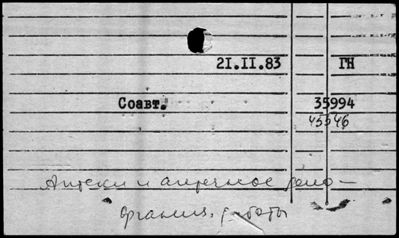 21.II.83 ГН
Соавт. 35994
45546
Аптеки и аптечное дело —
организ. работы